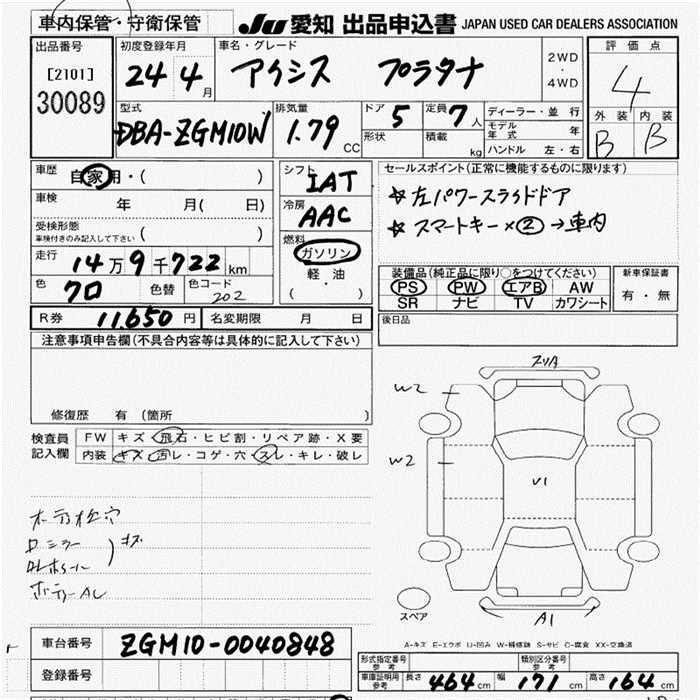 車内保管・守衛保管
JU 愛知 出品申込書 JAPAN USED CAR DEALERS ASSOCIATION
出品番号
[2101]
30089
初度登録年月
24 4月
車名・グレード
アイシス プラタナ
2WD
・
4WD
評価点
4
外装 内装
B B
型式
DBA-ZGM10W
排気量
1.79 CC
ドア 5
形状
定員 7人
積載 kg
ディーラー・並行
モデル年式 年
ハンドル 左・右
車歴
自家用・( )
車検 年 月( 日)
受検形態
車検付きのみ記入して下さい ( )
走行
14万9千722km
色 クロ 色替 色コード 202
シフト
IAT
冷房
AAC
燃料
ガソリン
・
軽油
( )
セールスポイント(正常に機能するものに限ります)
☆左パワースライドドア
☆スマートキー×②→車内
装備品(純正品に限り○をつけてください)
PS PW エアB AW
SR ナビ TV カワシート
新車保証書
有・無
R券 11,650円 名変期限 月 日
後日品
注意事項申告欄(不具合内容等は具体的に記入して下さい)
修復歴 有(箇所 )
検査員記入欄
FW キズ・飛石・ヒビ割・リペア跡・X要
内装 キズ・汚レ・コゲ・穴・スレ・キレ・破レ
ドミラー
キズ
ボデーAL
スリA
W2
W2
V1
A1
スペア
A-キズ E-エクボ U-凹み W-補修跡 S-サビ C-腐食 XX-交換済
車台番号 ZGM10-0040848
登録番号
型式指定番号参考
類別区分番号参考
車庫証明用参考 長さ 464cm 幅 171cm 高さ 164cm